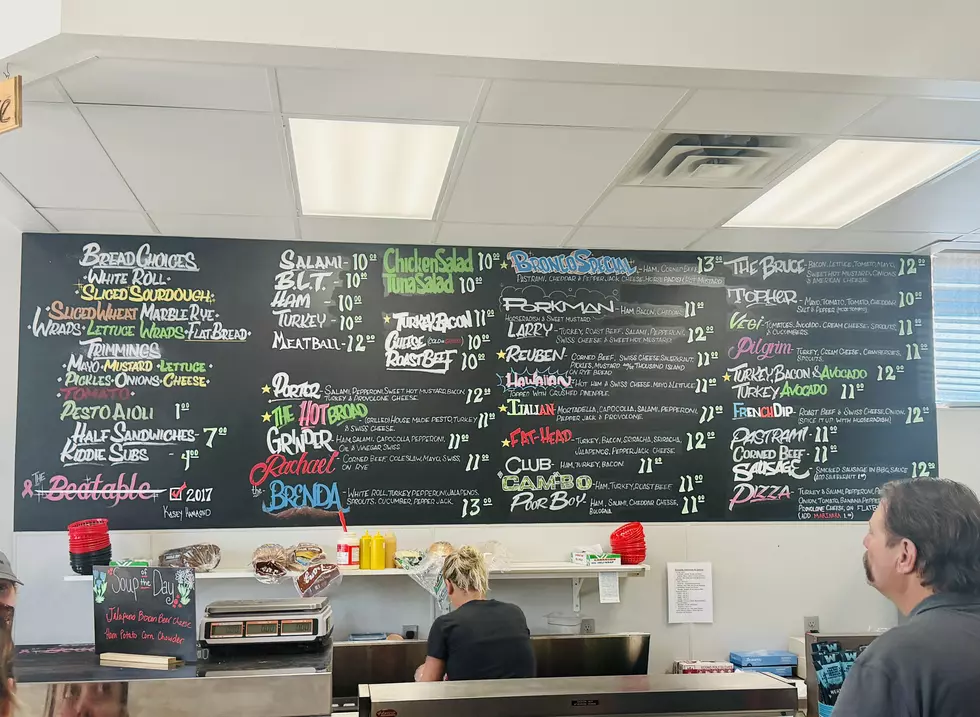 BREAD CHOICES
WHITE ROLL·
·SLICED SOURDOUGH·
SLICED WHEAT MARBLE RYE·
·WRAPS·LETTUCE WRAPS·FLATBREAD·
TRIMMINGS
·MAYO·MUSTARD·LETTUCE·
PICKLES·ONIONS·CHEESE·
·TOMATO·
PESTO AIOLI 1.00
HALF SANDWICHES- 7.00
KIDDIE SUBS -
THE
Beatable 2017
SALAMI- 10.00
B.L.T. 10.00
HAM 10.00
TURKEY- 10.00
MEATBALL- 12.00
Chicken Salad 10.00
Tuna Salad 10.00
TURKEY BACON 11.00
CHEESE 10.00
ROAST BEEF 10.00
PORTER- SALAMI, PEPPERONI, SWEET HOT MUSTARD, BACON, 12.00
TURKEY & PROVOLONE CHEESE.
THE HOT BROAD (GRILLED) HOUSE MADE PESTO, TURKEY 11.00
& SWISS CHEESE.
GRINDER HAM, SALAMI, CAPOCOLLA, PEPPERONI, 11.00
OIL & VINEGAR, SWISS
Rachael - CORNED BEEF, COLESLAW, MAYO, SWISS, 11.00
ON RYE
the BRENDA - WHITE ROLL, TURKEY, PEPPERONI, JALAPENOS, 13.00
SPROUTS, CUCUMBER, PEPPER JACK.
BRONCO SPECIAL - HAM, CORNED BEEF 13.00
PASTRAMI, CHEDDAR & PEPPERJACK CHEESE, HORSERADISH & MUSTARD
PORKMAN - HAM, BACON, CHEDDAR, 11.00
HORSERADISH & SWEET MUSTARD
LARRY - TURKEY, ROAST BEEF, SALAMI, PEPPERONI, 12.00
SWISS CHEESE & SWEET HOT MUSTARD
REUBEN - CORNED BEEF, SWISS CHEESE, SAUERKRAUT, 11.00
PICKLES, MUSTARD THOUSAND ISLAND
ON RYE BREAD
Hawaiian - HOT HAM & SWISS CHEESE, MAYO, LETTUCE 11.00
TOPPED WITH CRUSHED PINEAPPLE.
ITALIAN - MORTADELLA, CAPOCOLLA, SALAMI, PEPPERONI, 11.00
PEPPER JACK & PROVOLONE.
FAT-HEAD - TURKEY, BACON, SRIRACHA, 12.00
JALAPENOS, PEPPER JACK CHEESE
CLUB - HAM, TURKEY, BACON. 11.00
CAMBO - HAM, TURKEY, ROAST BEEF 11.00
POOR BOY - HAM, SALAMI, CHEDDAR CHEESE 11.00
BOLOGNA.
THE BRUCE - BACON, LETTUCE, TOMATO, MAYO, 12.00
SWEET HOT MUSTARD, ONIONS
& AMERICAN CHEESE.
TOPHER - MAYO, TOMATO, TOMATO, CHEDDAR, 10.00
SALT & PEPPER
VEGI - TOMATOES, AVOCADO, CREAM CHEESE, SPROUTS, 11.00
& CUCUMBERS.
Pilgrim - TURKEY, CREAM CHEESE, CRANBERRIES, 11.00
SPROUTS.
TURKEY, BACON & AVOCADO 12.00
TURKEY AVOCADO 11.00
FRENCH DIP - ROAST BEEF & SWISS CHEESE, ONION 12.00
(SPICE IT UP WITH HORSERADISH)
PASTRAMI - 11.00
CORNED BEEF - 11.00
SAUSAGE - SMOKED SAUSAGE IN BBQ SAUCE 12.00
PIZZA - TURKEY & SALAMI, PEPPERONI,
ONION, TOMATO, BANANA PEPPERS
PROVOLONE CHEESE, ON FLATBREAD
(ADD MARINARA
Soup of the Day
Jalapeno Bacon Beer Cheese
Ham Potato Corn Chowder